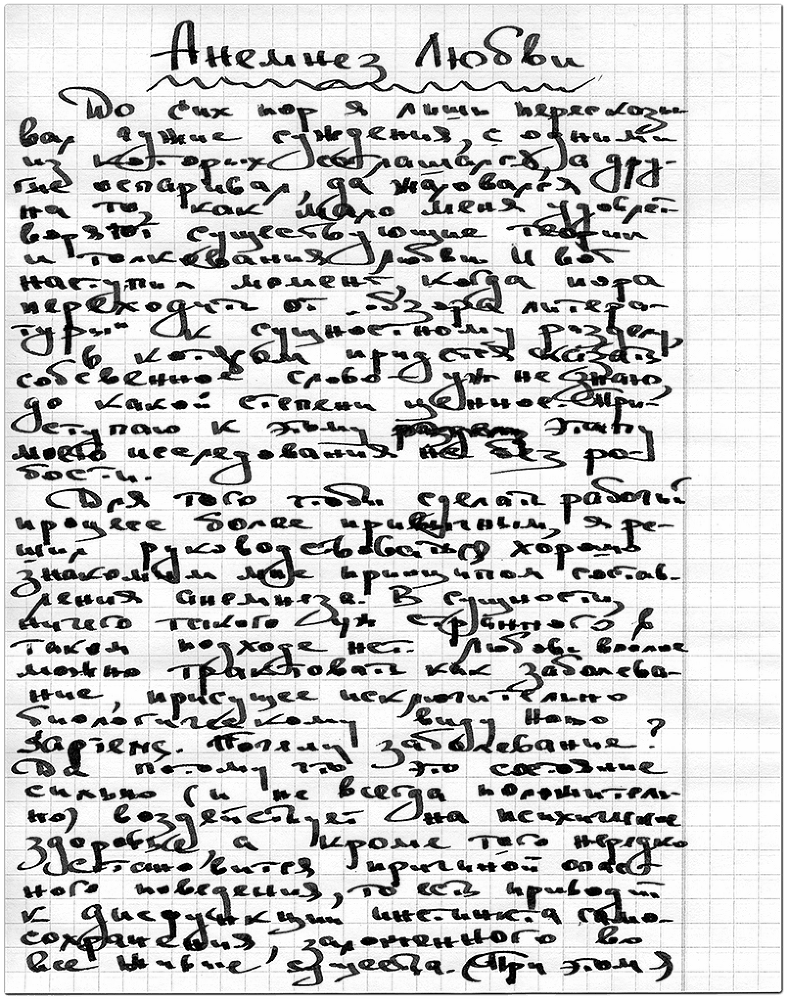 Анемнез Любви
До сих пор я лишь пересказы-
вал чужие суждения, с одними
из которых соглашался, а дру-
гие оспаривал, да жаловался
на то, как мало меня удовлет-
воряют существующие теории
и толкования любви. И вот
наступил момент, когда пора
переходить от "обзора литера-
туры" к сущностному разделу,
в котором придется сказать
собсвенное слово - уж не знаю,
до какой степени ценное. При-
ступаю к этому этапу
моего исследования не без ро-
бости.
Для того чтобы сделать рабочий
процесс более привычным, я ре-
шил руководствоваться хорошо
знакомым мне принципом состав-
ления анемнеза. В сущности,
ничего такого уж странного в
таком подходе нет. Любовь вполне
можно трактовать как заболева-
ние, присущее исключительно
биологическому виду Homo
Sapiens. Почему заболевание?
Да потому что это состояние
сильно (и не всегда положитель-
но) воздействует на психическое
здоровье, а кроме того нередко
становится причиной опас-
ного поведения, то есть приводит
к дисфункции инстинкта само-
сохранения, заложенного во
все живые существа. (При этом я